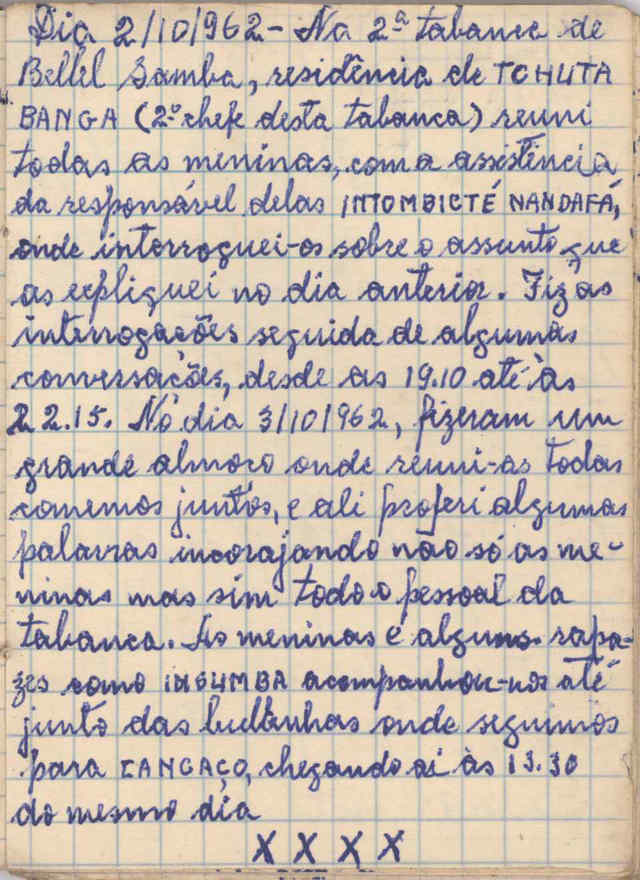 Dia 2/10/962 - Na 2ª tabanca de
Bellél Samba, residência de TCHUTA
BANGA (2º chefe desta tabanca) reuni
todas as meninas, com a assistência
da responsável delas INTOMBICTÉ NANDAFÁ,
onde interroguei-os sobre o assunto que
as expliquei no dia anterior. Fiz as
interrogações seguida de algumas
conversações, desde as 19.10 até às
22.15. No dia 3/10/962, fizeram um
grande almoço onde reuni-as todas
comemos juntos, e ali proferi algumas
palavras incorajando não só as me-
ninas mas sim todo o pessoal da
tabanca. As meninas e alguns rapa-
zes como INSUMBA acompanhou-nos até
junto das onde seguimos
para CANGAÇO, chegando aí às 13.30
do mesmo dia
X X X X